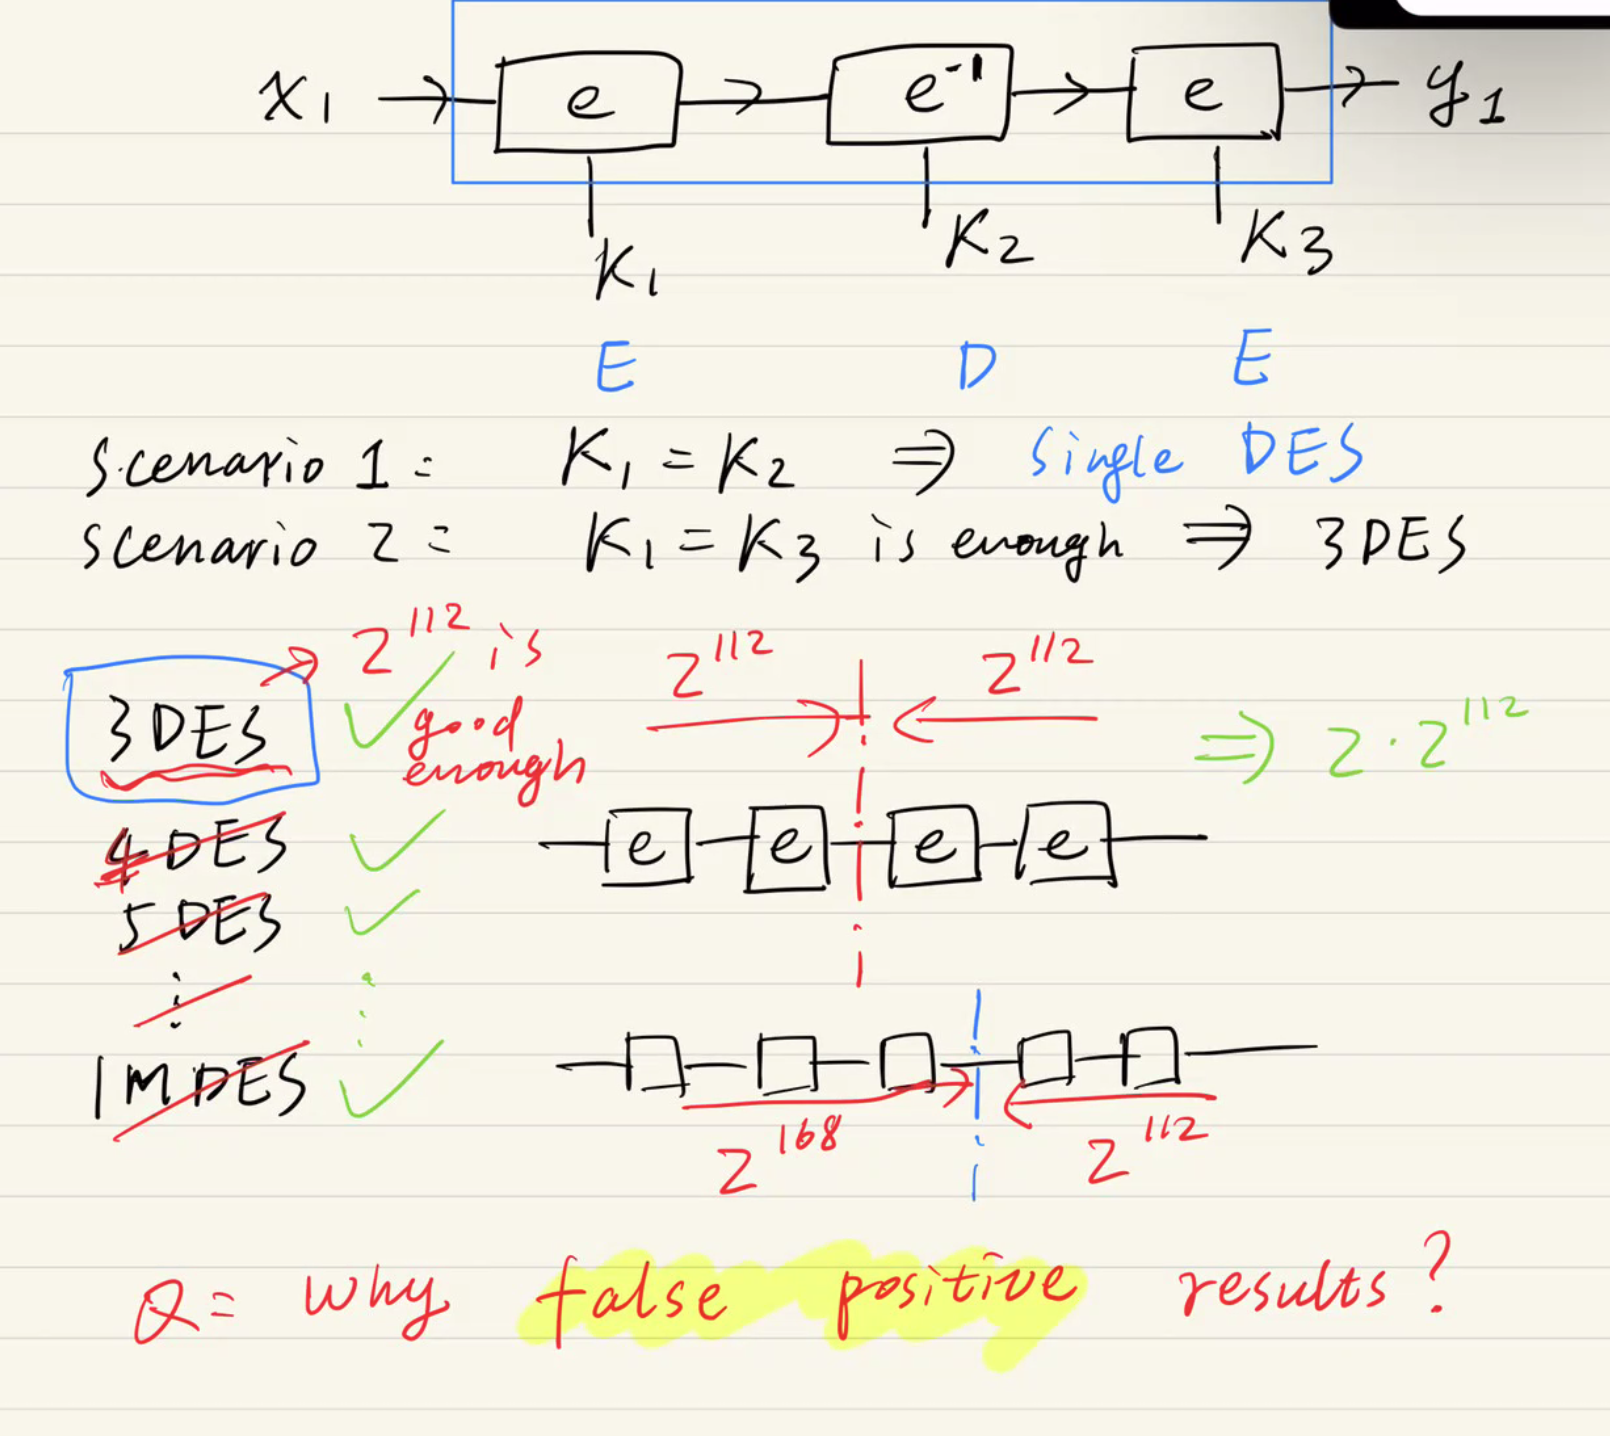 x₁ e e⁻¹ e y₁
K₁ K₂ K₃
E D E
Scenario 1: K₁ = K₂ ⇒ Single DES
Scenario 2: K₁ = K₃ is enough ⇒ 3DES
3DES → 2¹¹² is good enough
2¹¹² 2¹¹² ⇒ 2 · 2¹¹²
4DES
e e e e
5DES
⋮
1MDES
2¹⁶⁸ 2¹¹²
Q: why false positive results?